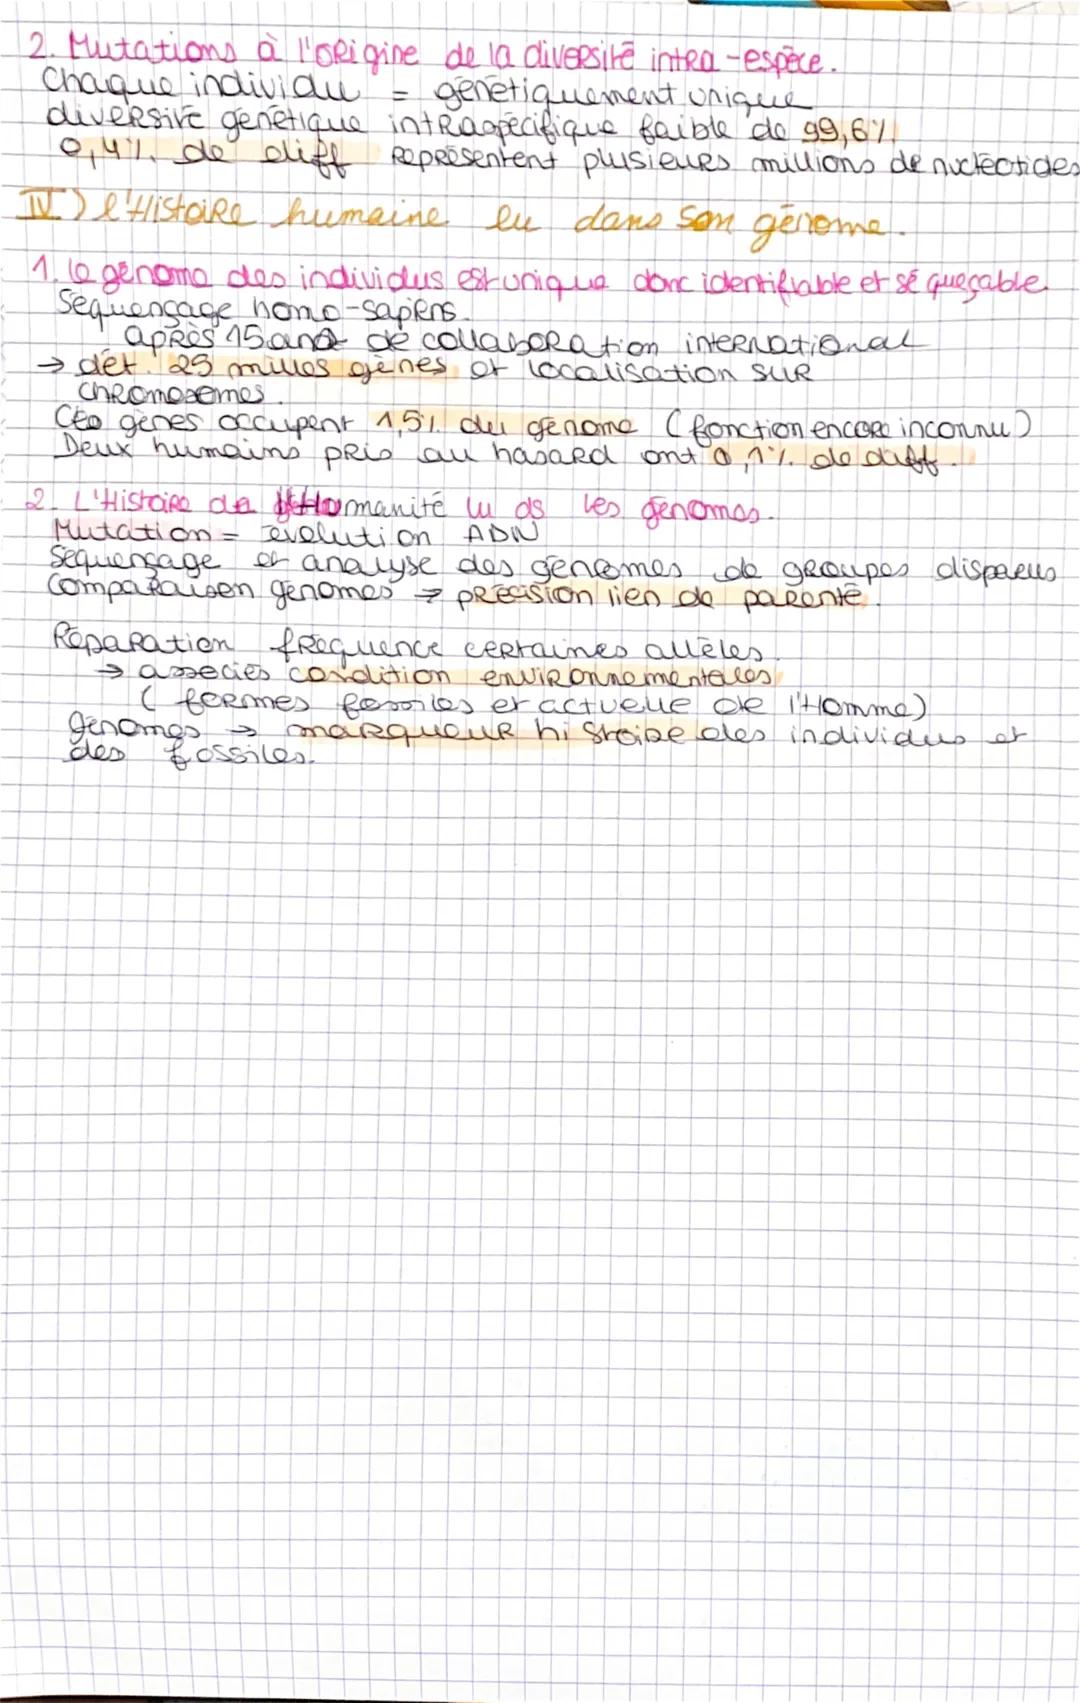 2. Mutations à l'origine de la diversité intra-espèce.
Chaque individu = génétiquement unique
diversité génétique intraspécifique faible de 99,6%
0,4% de diff représentent plusieurs millions de nucléotides
IV) l'Histoire humaine lu dans son génome.
1. le génome des individus est unique donc identifiable et séquençable
Séquençage homo-sapiens.
après 15 ans de collaboration international
→ dét. 25 milles gènes et localisation sur
chromosomes.
Ces gènes occupent 1,5% du génome (fonction encore inconnu)
Deux humains pris au hasard ont 0,1% de diff.
2. L'Histoire de Humanité lu ds les génomes.
Mutation = évolution ADN
Séquençage et analyse des génomes de groupes disparus
Comparaison génomes → précision lien de parenté.
Réparation fréquence certaines allèles
→ associés condition environnementales
(formes fossiles et actuelle de l'Homme)
génomes → marqueur histoire des individus et
des fossiles.